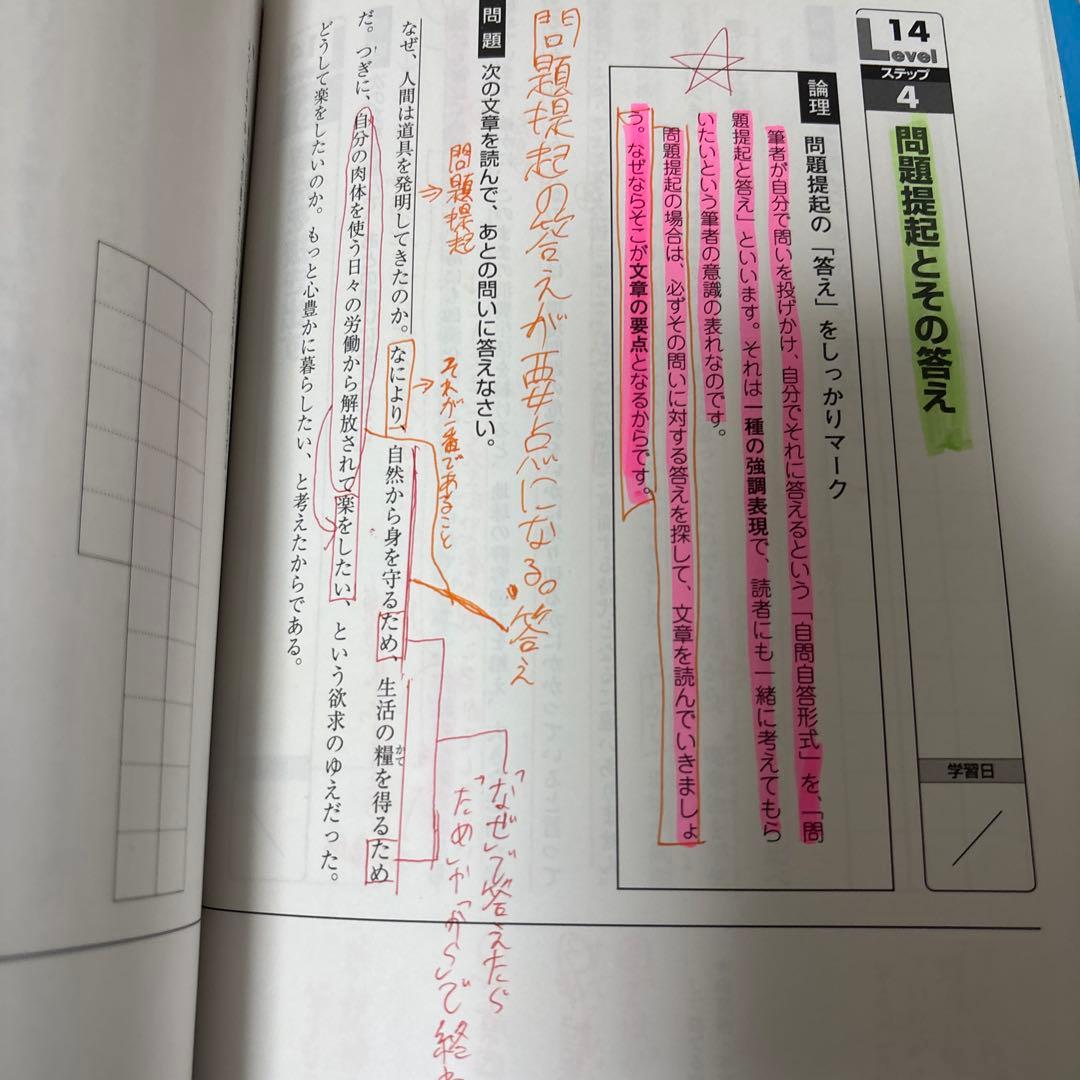 14
Level
ステップ
4
問題提起とその答え
学習日
論理 問題提起の「答え」をしっかりマーク
筆者が自分で問いを投げかけ、自分でそれに答えるという「自問自答形式」を、「問
題提起と答え」といいます。それは一種の強調表現で、読者にも一緒に考えてもら
いたいという筆者の意識の表れなのです。
問題提起の場合は、必ずその問いに対する答えを探して、文章を読んでいきましょ
う。なぜならそこが文章の要点となるからです。
問題提起の答えが要点になる。
答え
問題 次の文章を読んで、あとの問いに答えなさい。
「なぜ」で答えたら
「ため」か「から」で終
問題提起
それが一番であること
なぜ、人間は道具を発明してきたのか。なにより、自然から身を守るため、生活の糧を得るため
かて
だ。つぎに、自分の肉体を使う日々の労働から解放されて楽をしたい、という欲求のゆえだった。
どうして楽をしたいのか。もっと心豊かに暮らしたい、と考えたからである。